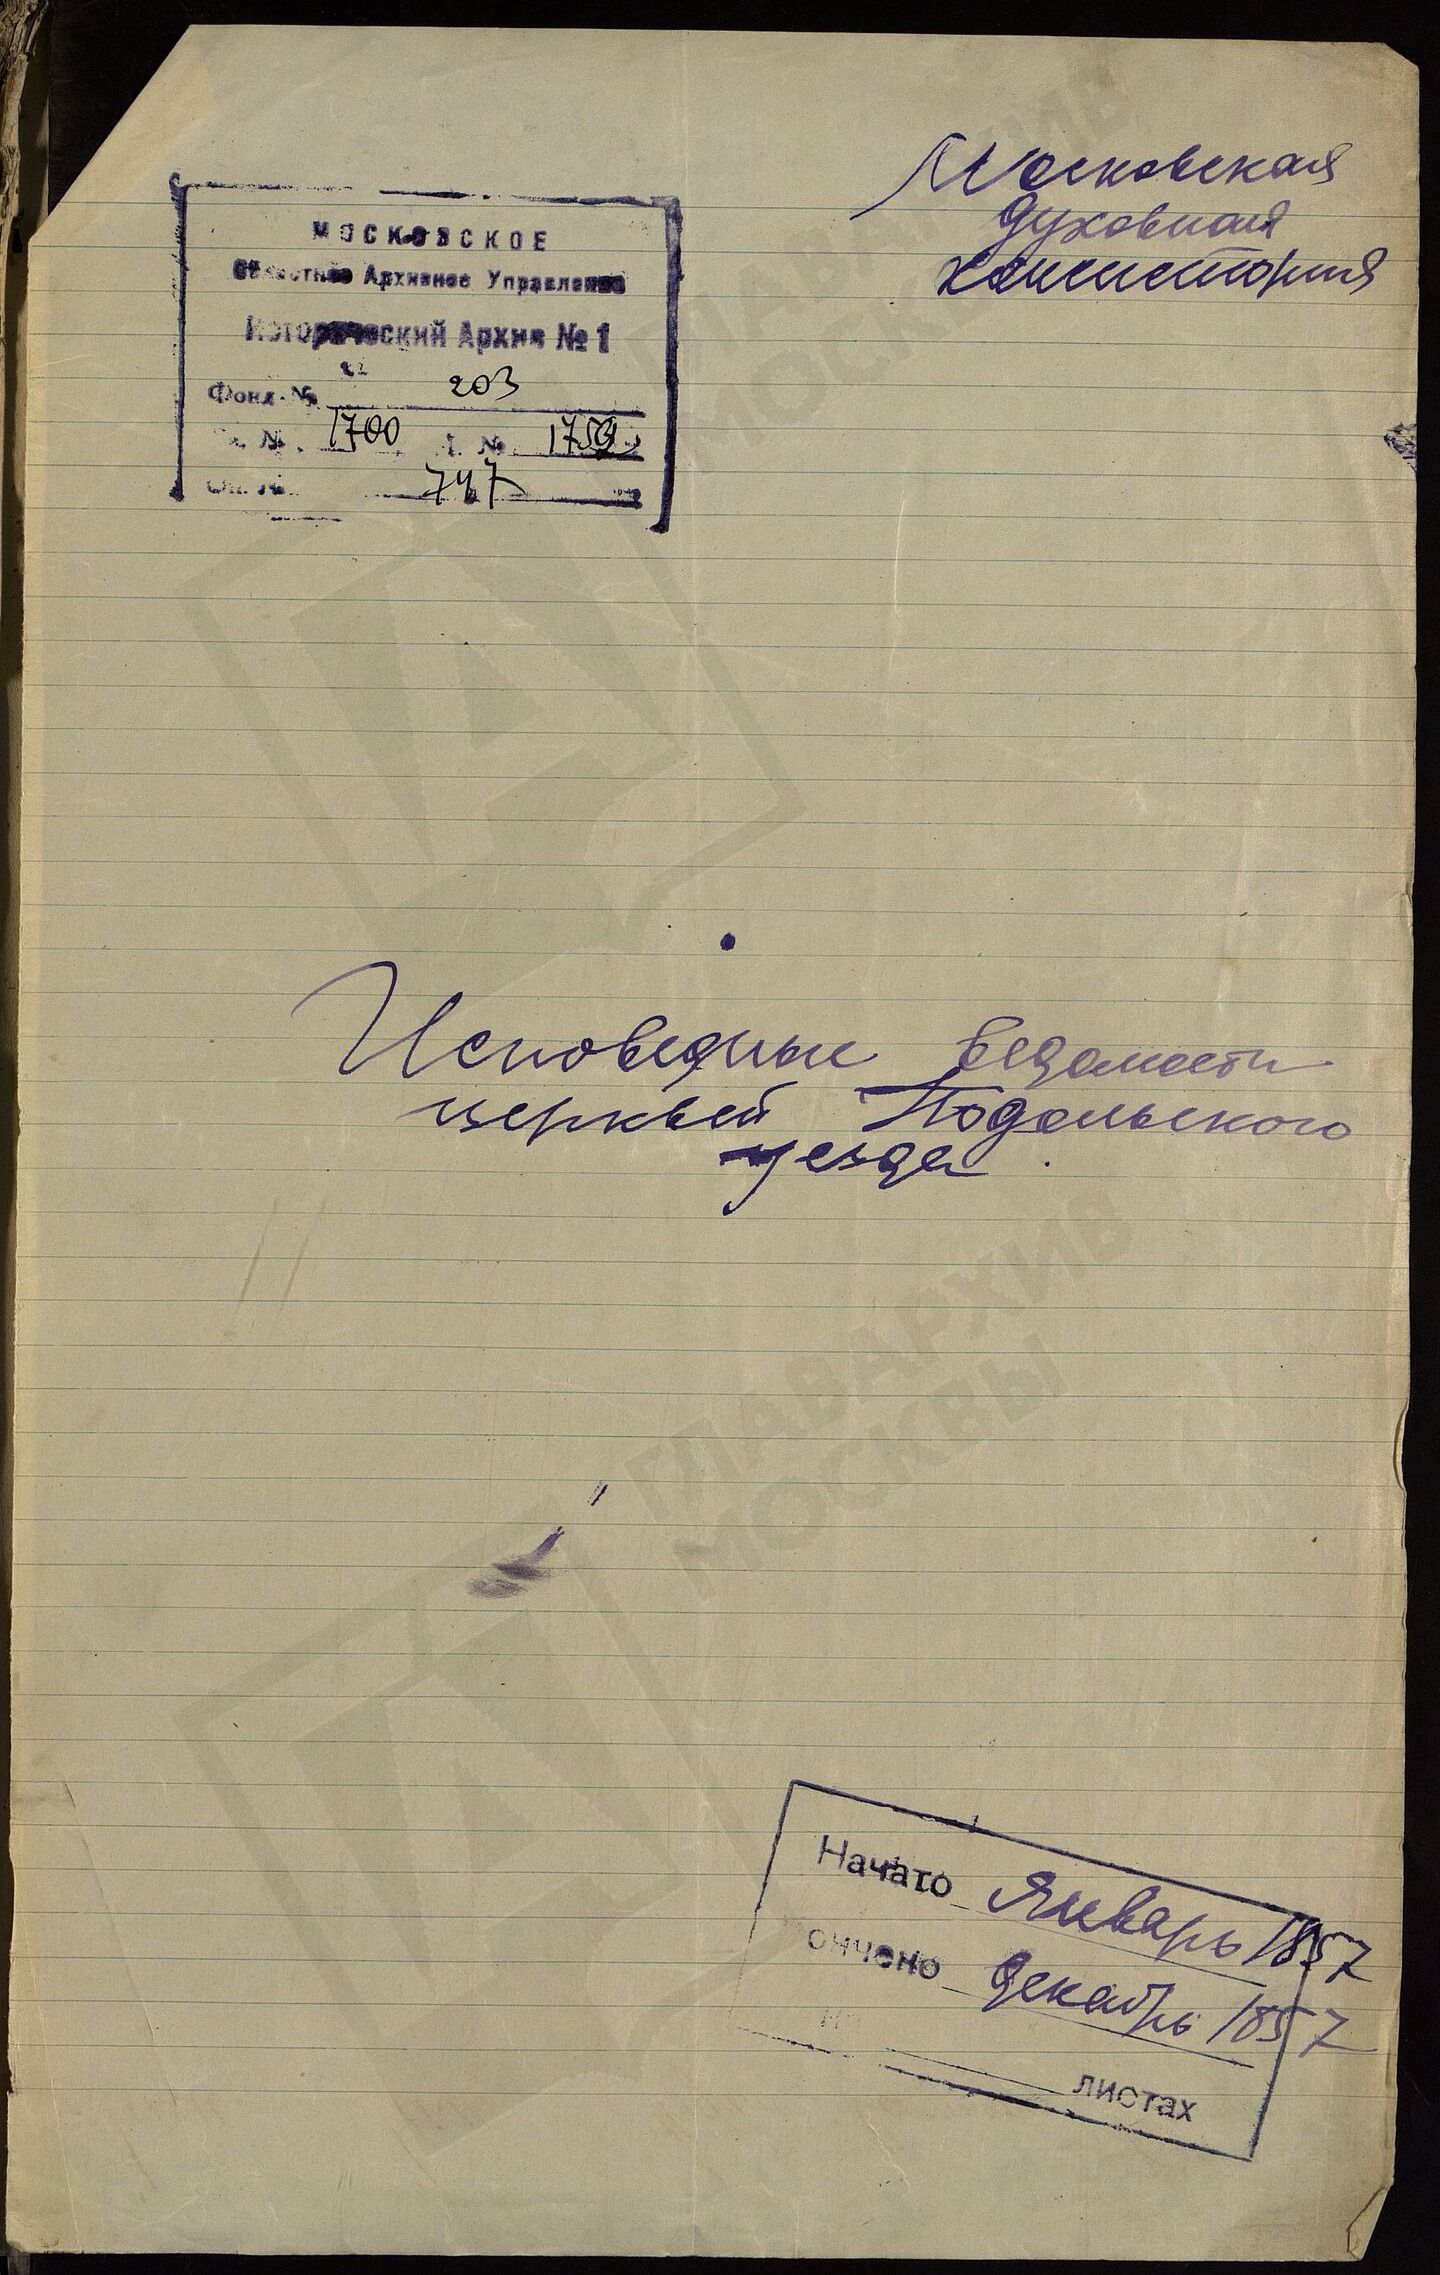 Московская
духовная
консистория
МОСКОВСКОЕ
Областное Архивное Управление
Исторический Архив № 1
Фонд № 203
№ 1700 № 1759
Оп. № 747
Исповедные ведомости
церквей Подольского
уезда
ГЛАВАРХИВ
МОСКВЫ
Начато Январь 1857
ончено Декабрь 1857
листах